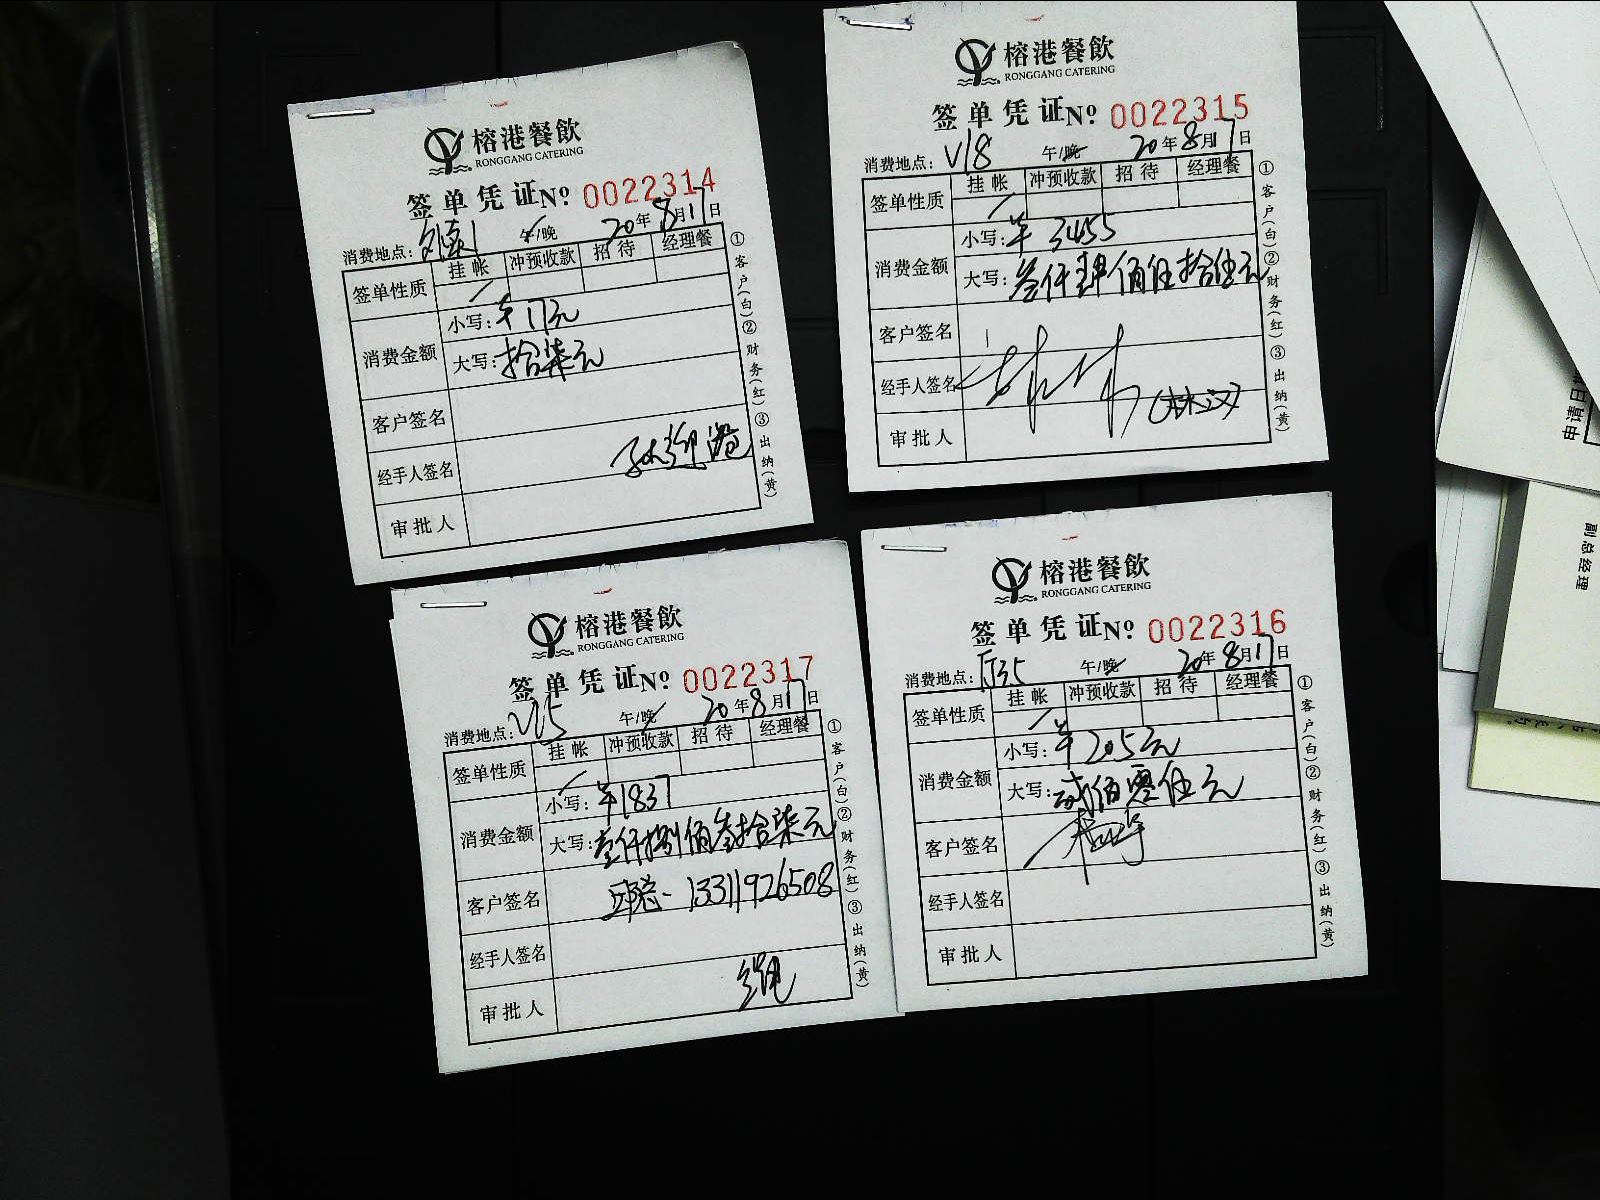 榕港餐飲
RONGGANG CATERING
签单凭证№ 0022314
消费地点: 午/晚 20年8月17日
签单性质 挂帐 冲预收款 招待 经理餐
消费金额 小写: ¥17元
大写: 拾柒元
客户签名
经手人签名 孙迎港
审批人
①客户(白)②财务(红)③出纳(黄)
榕港餐飲
RONGGANG CATERING
签单凭证№ 0022315
消费地点: V18 午/晚 20年8月17日
签单性质 挂帐 冲预收款 招待 经理餐
消费金额 小写: ¥3455
大写: 叁仟肆佰伍拾伍元
客户签名
经手人签名
审批人
①客户(白)②财务(红)③出纳(黄)
榕港餐飲
RONGGANG CATERING
签单凭证№ 0022317
消费地点: 午/晚 20年8月17日
签单性质 挂帐 冲预收款 招待 经理餐
消费金额 小写: ¥1837
大写: 壹仟捌佰叁拾柒元
客户签名 13311926508
经手人签名
审批人
①客户(白)②财务(红)③出纳(黄)
榕港餐飲
RONGGANG CATERING
签单凭证№ 0022316
消费地点: 午/晚 20年8月17日
签单性质 挂帐 冲预收款 招待 经理餐
消费金额 小写: ¥205元
大写: 贰佰零伍元
客户签名
经手人签名
审批人
①客户(白)②财务(红)③出纳(黄)
日请申
副总经理